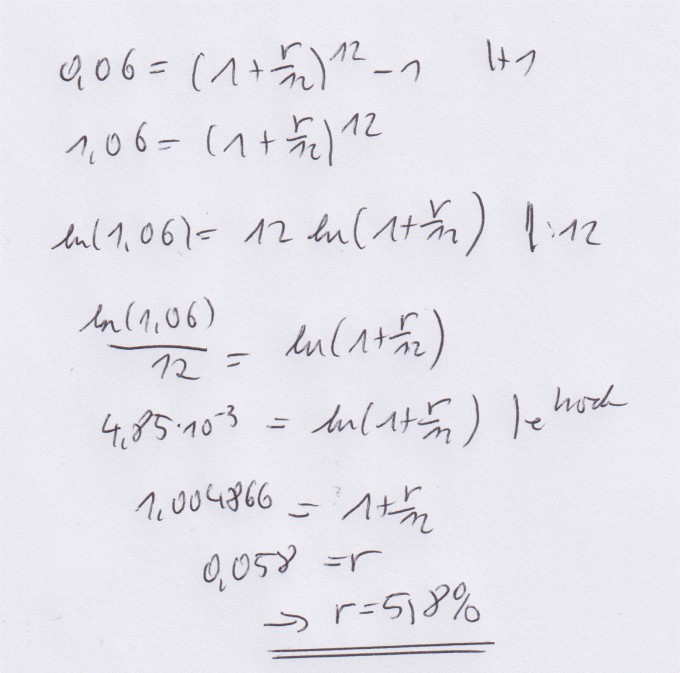 0,06 = (1 + r/12)^12 - 1 |+1
1,06 = (1 + r/12)^12
ln(1,06) = 12 ln(1 + r/12) |:12
ln(1,06)/12 = ln(1 + r/12)
4,85·10^-3 = ln(1 + r/12) |e^hoch
1,004866 = 1 + r/12
0,058 = r
→ r = 5,8%